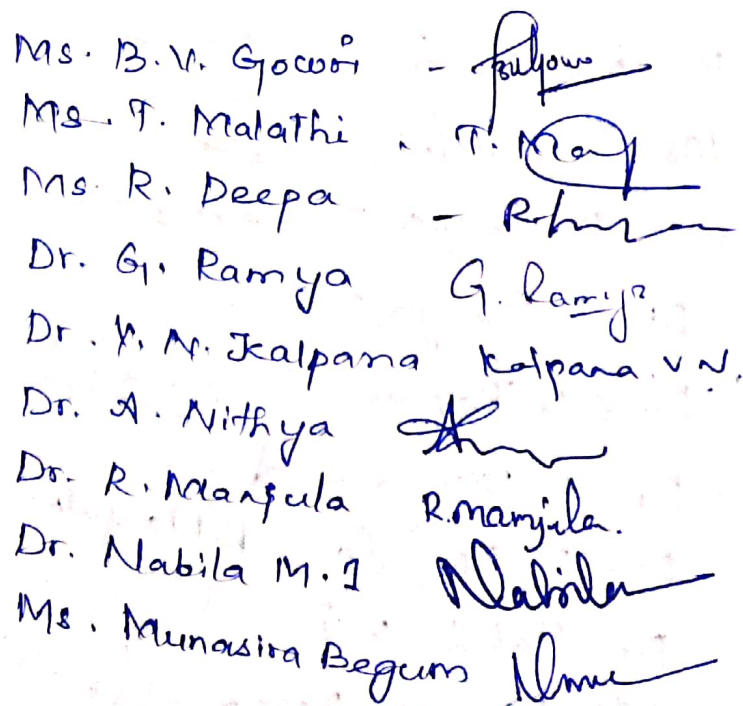 Ms. B.V. Gowri -
Ms. T. Malathi . T. Mal
Ms. R. Deepa -
Dr. G. Ramya G. Ramya
Dr. V. N. Kalpana Kalpana. V N.
Dr. A. Nithya
Dr. R. Manjula R. Manjula.
Dr. Nabila M. I Nabila
Ms. Munasira Begum